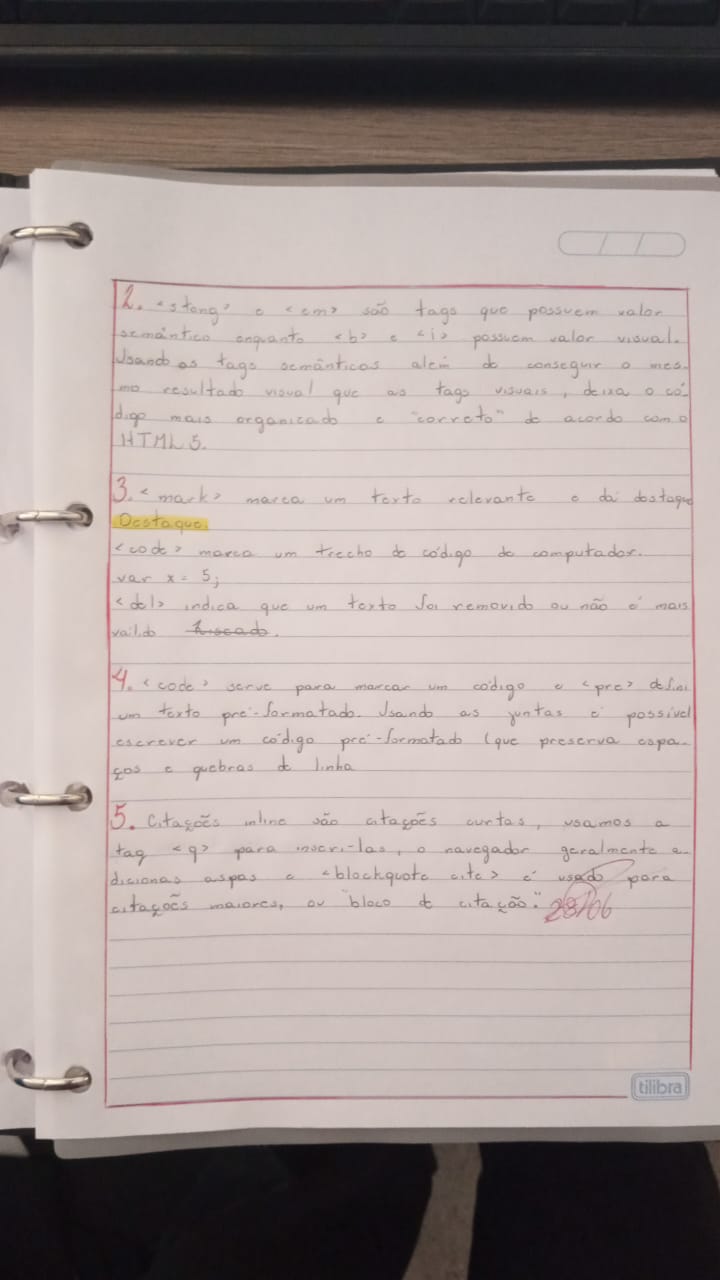 2. <stong> e <em> são tags que possuem valor
semântico enquanto <b> e <i> possuem valor visual.
Usando as tags semânticas além de conseguir o mes-
mo resultado visual que as tags visuais, deixa o có-
digo mais organizado e "correto" de acordo com o
HTML 5.
3. <mark> marca um texto relevante e dá destaque
Destaque
<code> marca um trecho de código de computador.
var x = 5;
<del> indica que um texto foi removido ou não é mais
vailido Riscado.
4. <code> serve para marcar um código e <pre> defini
um texto pré-formatado. Usando as juntas é possível
escrever um código pré-formatado (que preserva espa-
ços e quebras de linha
5. Citações inline são citações curtas, usamos a
tag <q> para inseri-las, o navegador geralmente a-
dicionas aspas e <blockquote cite> é usado para
citações maiores, ou "bloco de citação".
28/06
tilibra